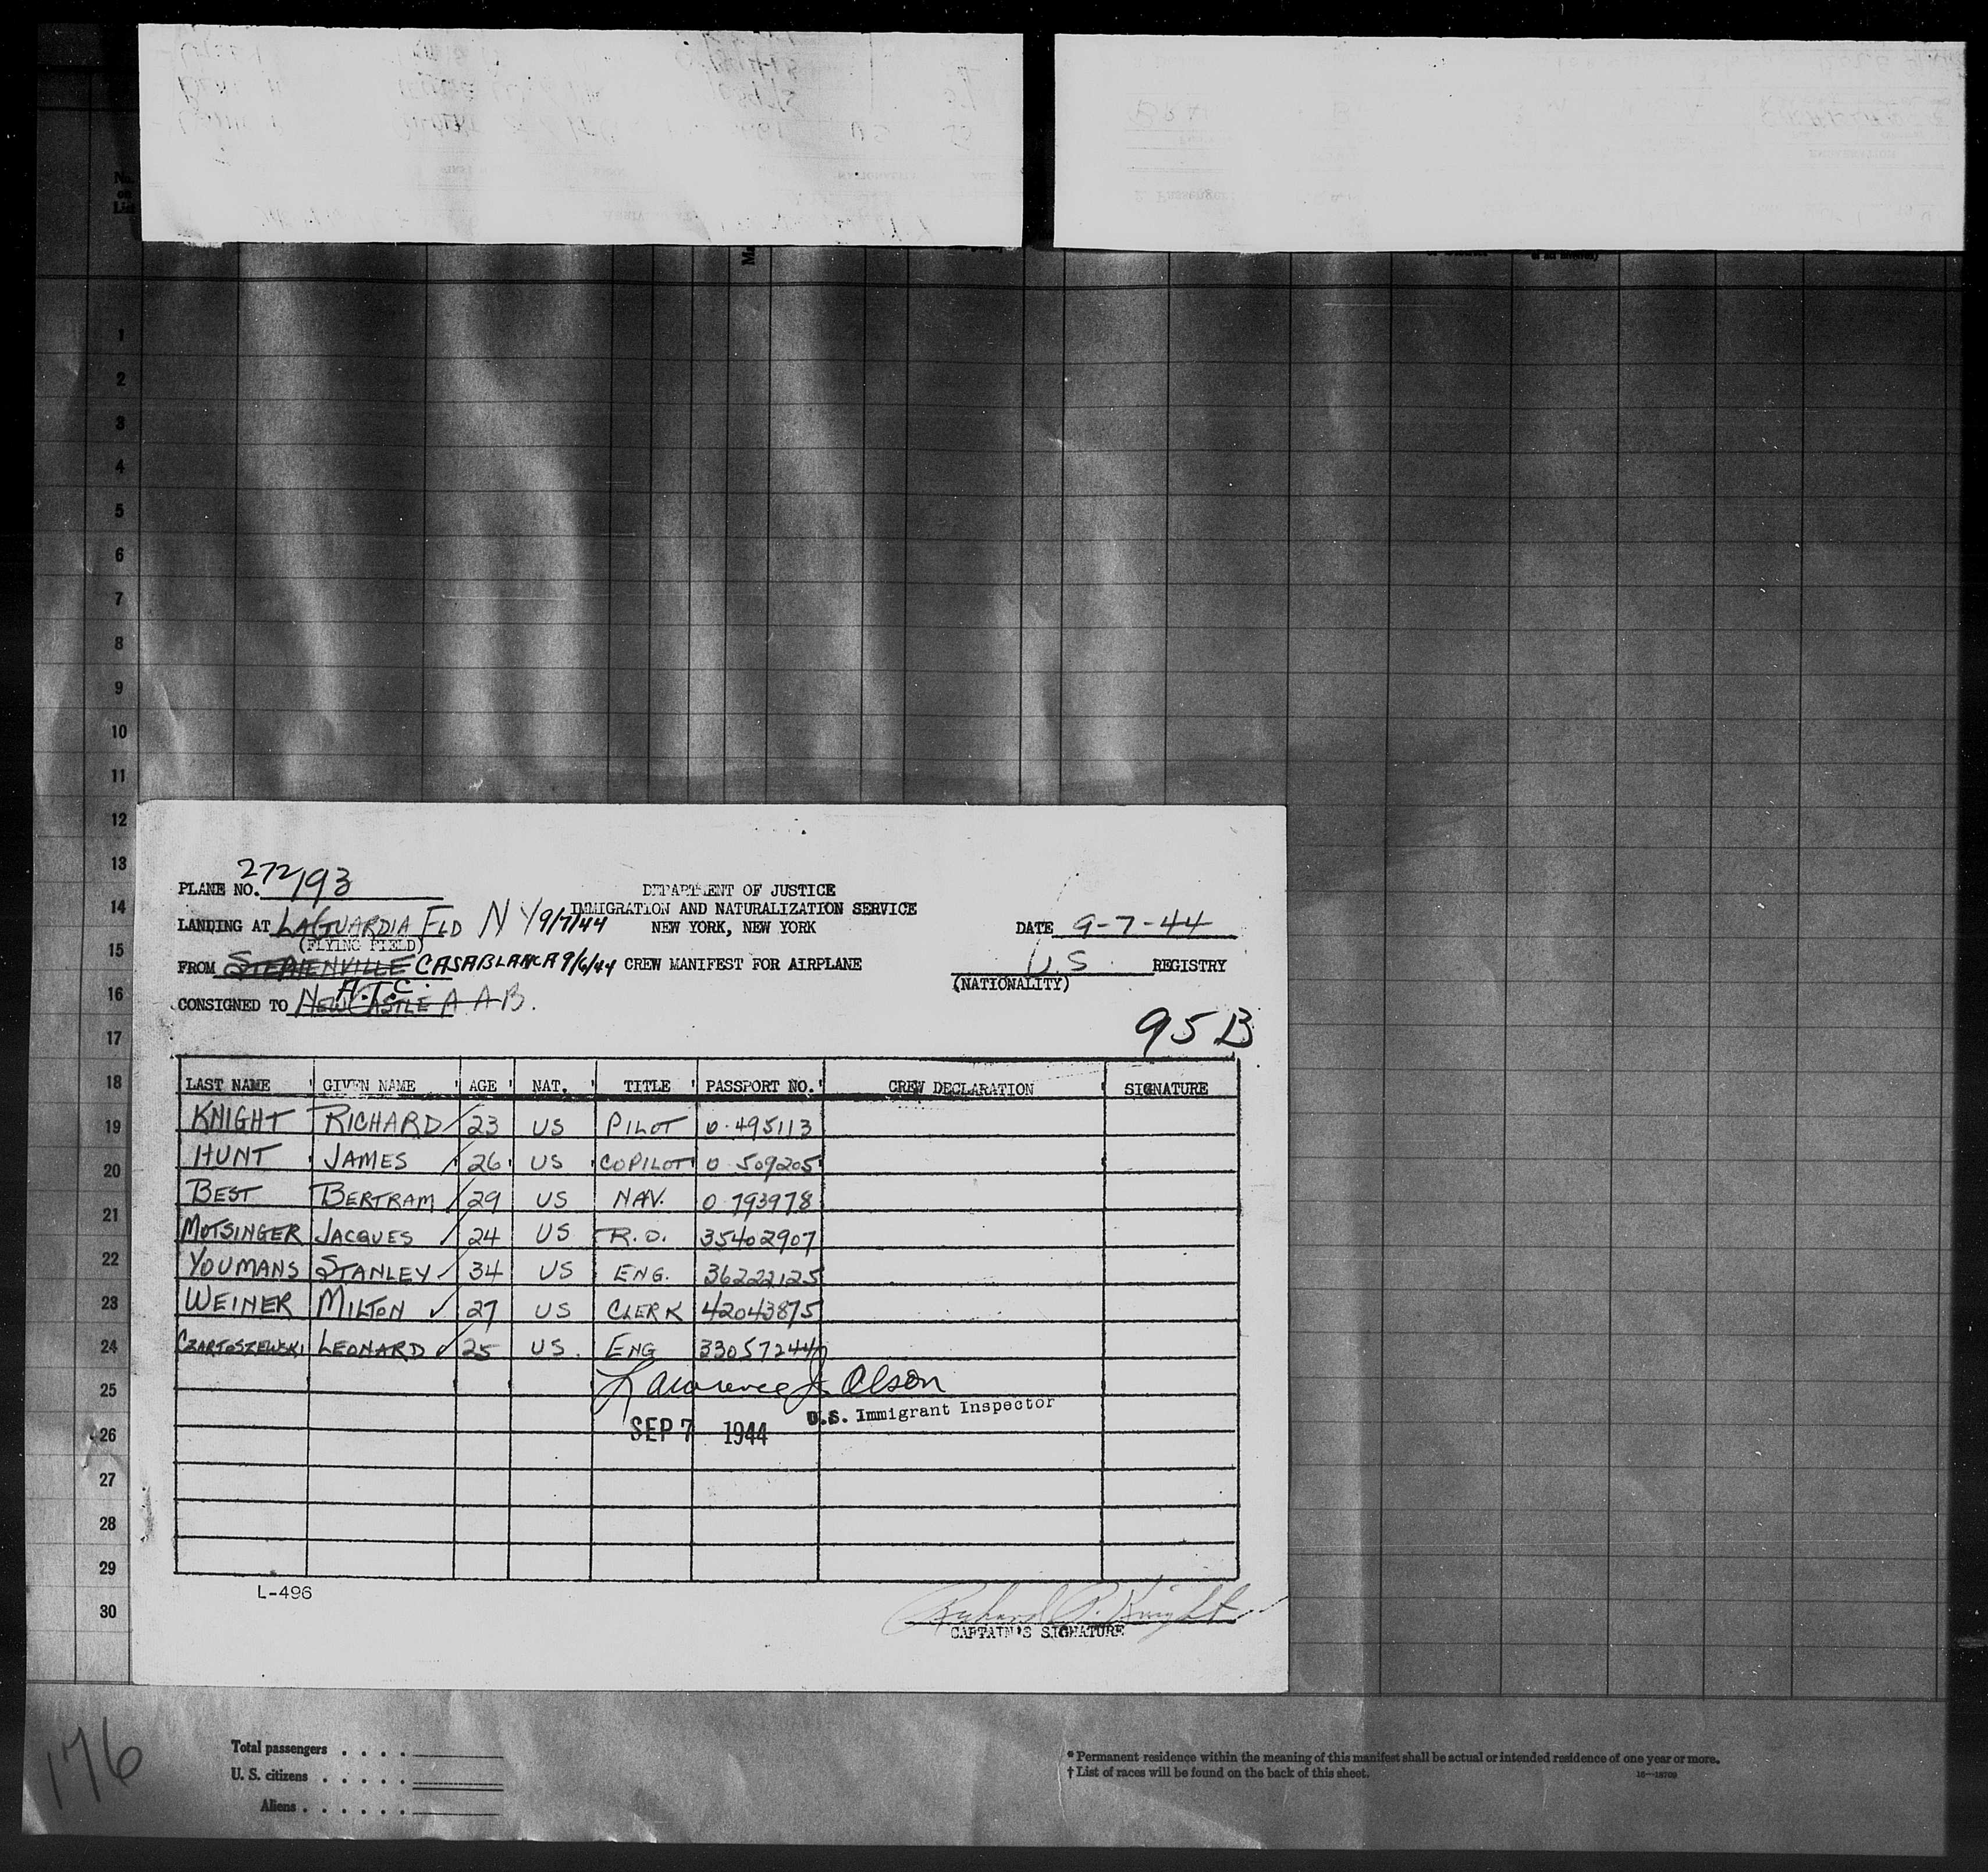 No.
on
List
1
2
3
4
5
6
7
8
9
10
11
12
13
14
15
16
17
18
19
20
21
22
23
24
25
26
27
28
29
30
PLANE NO. 272193
DEPARTMENT OF JUSTICE
IMMIGRATION AND NATURALIZATION SERVICE
LANDING AT LAGUARDIA FLD N Y 9/7/44 NEW YORK, NEW YORK DATE 9-7-44
(FLYING FIELD)
FROM STEPHENVILLE CASABLANCA 9/6/44 CREW MANIFEST FOR AIRPLANE U.S. REGISTRY
(NATIONALITY)
A.T.C.
CONSIGNED TO NEW CASTLE A A B.
95B
LAST NAME GIVEN NAME AGE NAT. TITLE PASSPORT NO. CREW DECLARATION SIGNATURE
KNIGHT RICHARD 23 US PILOT 0-495113
HUNT JAMES 26 US COPILOT 0 509205
BEST BERTRAM 29 US NAV. 0 793978
MOTSINGER JACQUES 24 US R.O. 35402907
YOUMANS STANLEY 34 US ENG. 36222125
WEINER MILTON 27 US CLERK 42043875
CZARTOSZEWSKI LEONARD 25 US. ENG 33057244
Lawrence J. Olson
U.S. Immigrant Inspector
SEP 7 1944
L-496
Richard P. Knight
CAPTAIN'S SIGNATURE
176
Total passengers . . . .
U. S. citizens . . . . .
Aliens . . . . . .
* Permanent residence within the meaning of this manifest shall be actual or intended residence of one year or more.
† List of races will be found on the back of this sheet.